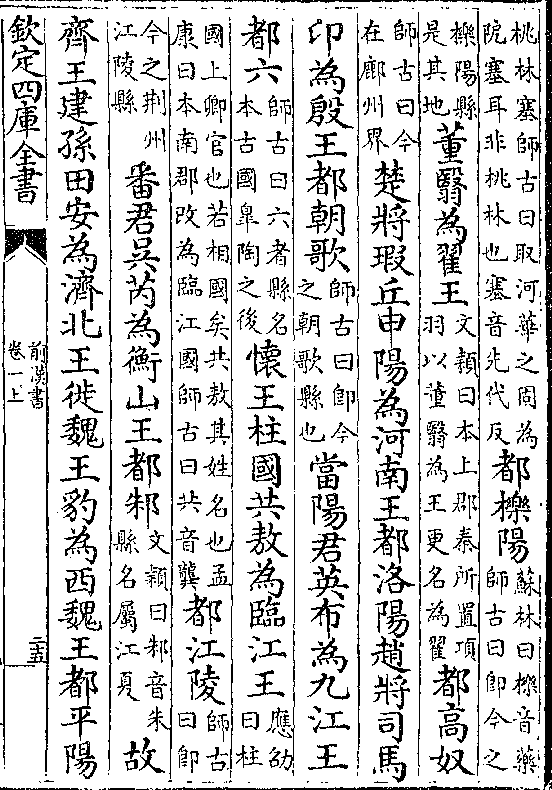 桃林塞師古曰取河華之固為阨塞耳非桃林也塞音先代反都櫟陽蘇林曰櫟音藥師古曰即今之
櫟陽縣是其地董翳為翟王文穎曰本上郡秦所置項羽以董翳為王更名為翟都高奴
師古曰今在鄜州界楚將瑕丘申陽為河南王都洛陽趙將司馬
卬為殷王都朝歌師古曰即今之朝歌縣也當陽君英布為九江王
都六師古曰六者縣名本古國臯陶之後懷王柱國共敖為臨江王應劭曰柱
國上卿官也若相國矣共敖其姓名也孟康曰本南郡改為臨江國師古曰共音龔都江陵師古曰即
今之荆州江陵縣番君吳芮為衡山王都邾文穎曰邾音朱縣名屬江夏故
齊王建孫田安為濟北王徙魏王豹為西魏王都平陽
欽定四庫全書
前漢書
卷一上
二五